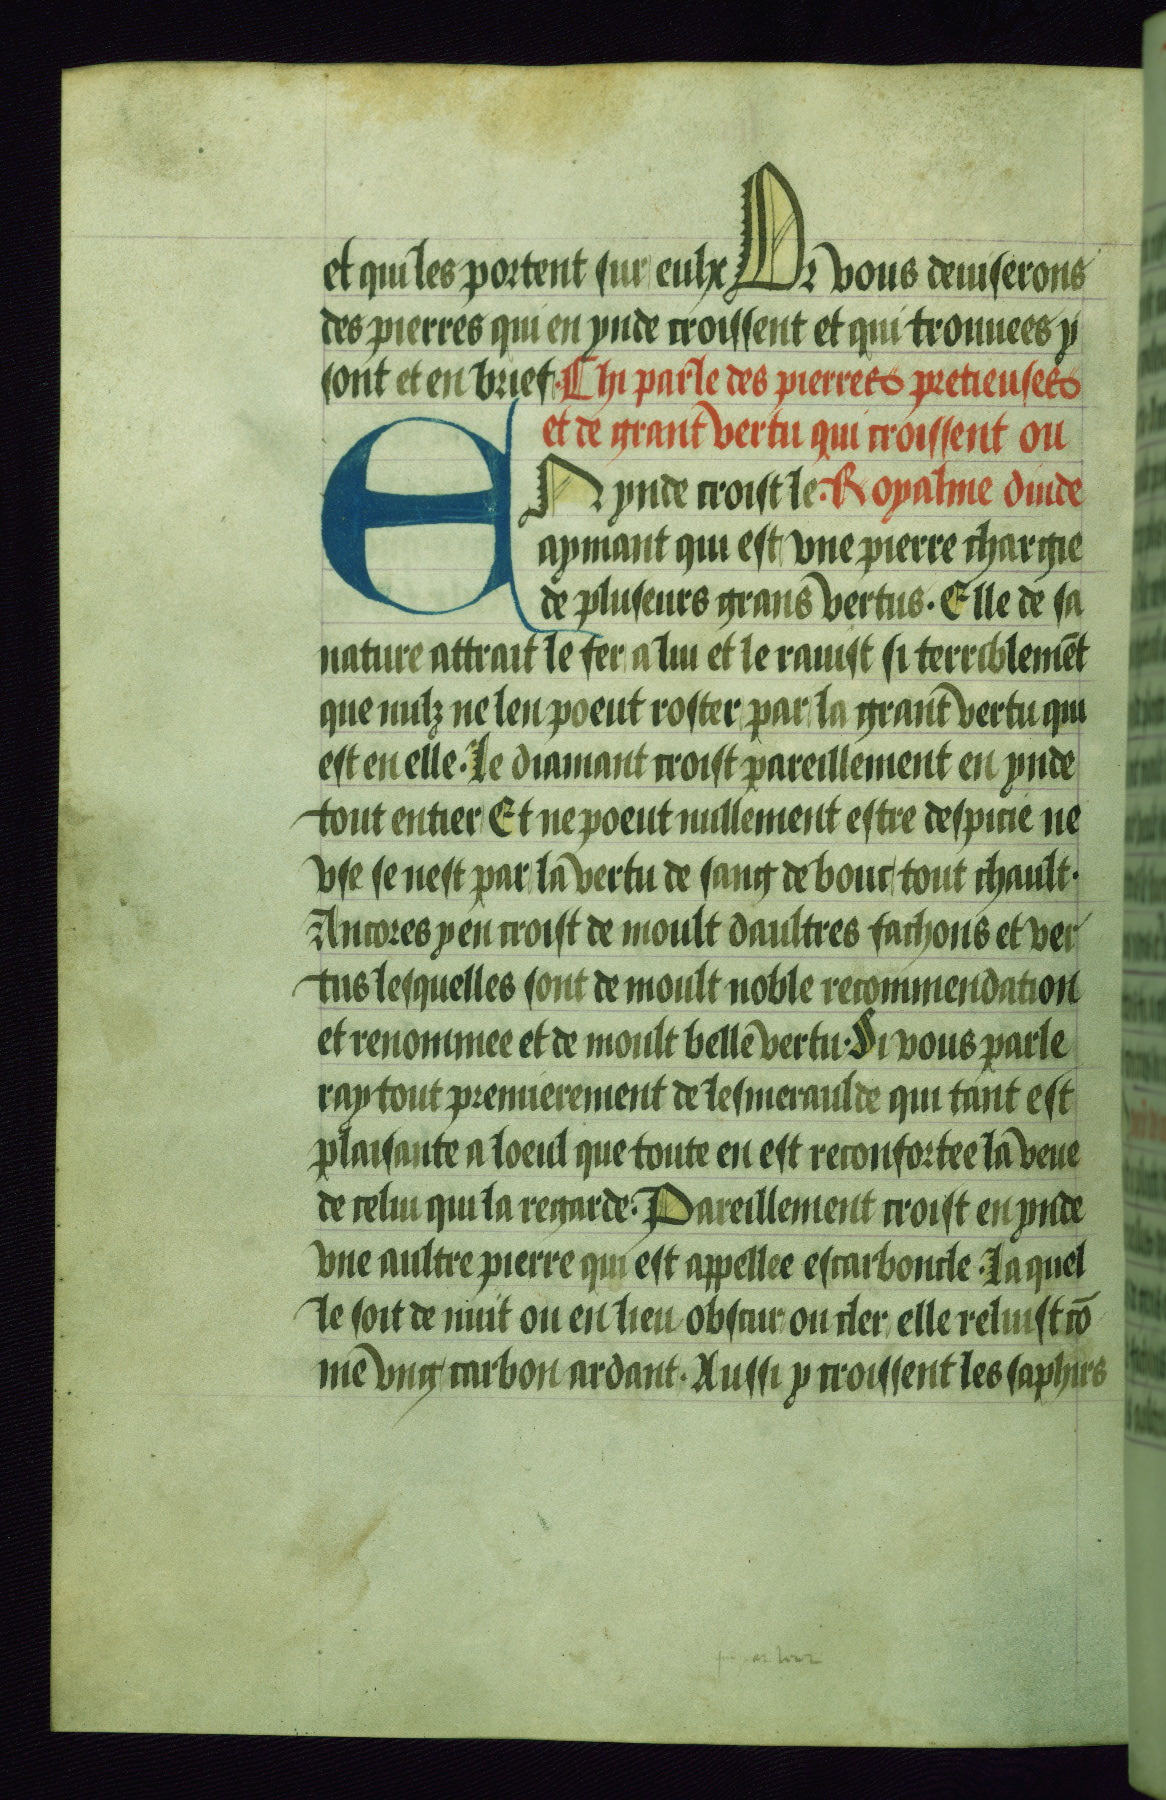 et qui les portent sur eulx Or vous deuiserons
des pierres qui en ynde croissent et qui trouuees y
sont et en brief. Chi parle des pierrees pretieusees
et de grant vertu qui croissent ou
EN ynde croist le. Royalme dinde
aymant qui est vne pierre chargie
de pluseurs grans vertus. Elle de sa
nature attrait le fer a lui et le rauist si terriblemēt
que nulz ne len poeut roster par la grant vertu qui
est en elle. Le diamant croist pareillement en ynde
tout entier Et ne poeut nullement estre despicie ne
vse se nest par la vertu de sang de bouc tout chault.
Ancores y en croist de moult daultres fachons et ver
tus lesquelles sont de moult noble recommendation
et renommee et de moult belle vertu. Si vous parle
ray tout premierement de lesmeraulde qui tant est
plaisante a loeul que toute en est reconfortee la veue
de celui qui la regarde. Pareillement croist en ynde
vne aultre pierre qui est appellee escarboncle. Laquel
le soit de nuit ou en lieu obscur ou cler elle reluist cō
me vng carbon ardant. Aussi y croissent les saphirs